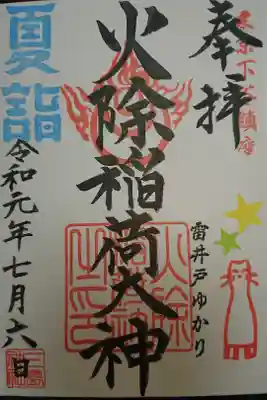 奉拝
雷井戸ゆかり
火除稲荷大神
夏詣
令和元年七月六日